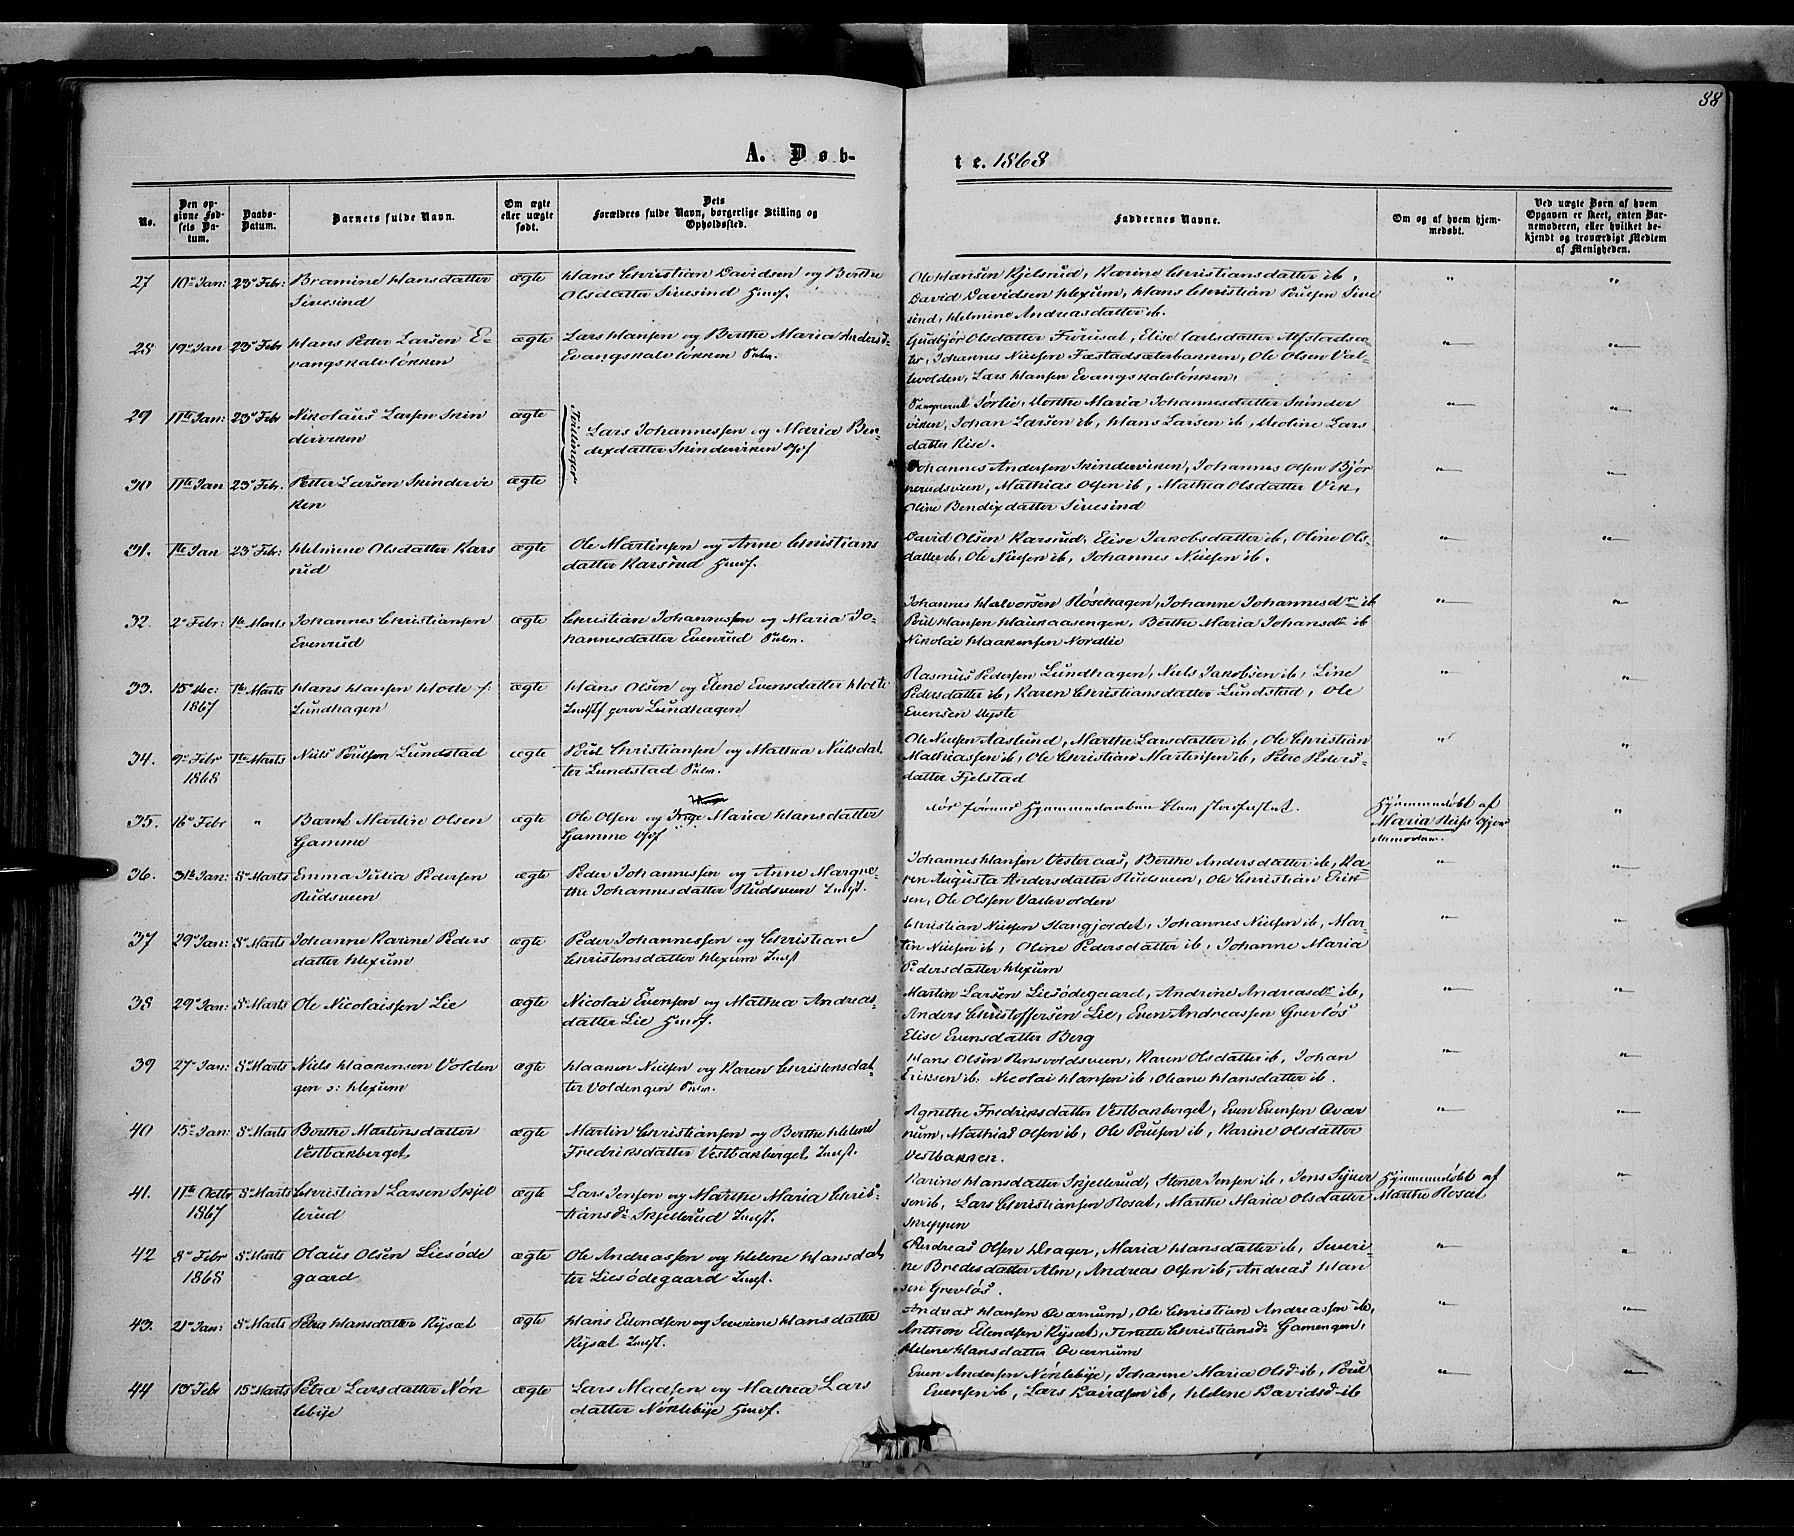 88
A. Døb-
te. 1868
No.
Den op-
givne Fød-
sels Da-
tum.
Daabs-
Datum.
Barnets fulde Navn.
Om ægte
eller uægte
født.
Dets
Forældres fulde Navn, borgerlige Stilling og
Opholdssted.
Faddernes Navne.
Om og af hvem hjem-
medøbt.
Ved uægte Børn af hvem
Opgaven er skeet, enten Bar-
nemoderen, eller hvilket be-
kjendt og troværdigt Medlem
af Menigheden.
27 10de Jan: 23de Febr: Bramine Hansdatter
Sivesind
ægte
Hans Christian Davidsen og Berthe
Olsdatter Sivesind Husf.
Ole Hansen Kjelsrud, Karine Christiansdatter ib,
David Davidsen Hexum, Hans Christian Poulsen Sive
sind, Helmine Andreasdatter ib.
28 19de Jan 23de Febr Hans Petter Larsen E-
vangskalvløkken
ægte
Lars Hansen og Berthe Maria Andersd-
Evangskalvløkken
Gudbjør Olsdatter, Elise Carlsdatter
Johannes Nielsen, Ole Olsen Val-
levolden, Lars Hansen Evangskalvløkken,
29 11te Jan: 23de Febr Nikolaus Larsen Skin
derviken
ægte
Tvillinger
Lars Johannessen og Maria Ben-
dixdatter Skinderviken
Sørlie, Marthe Maria Johannesdatter Skinder
viken, Johan Larsen ib, Hans Larsen ib, Lars
datter Rise.
30 11te Jan 23de Febr. Petter Larsen Skindervi
ken
ægte
Johannes Andersen Skinderviken, Johannes Olsen Bjør
nerudsveen, Mathias Olsen ib, Mathea Olsdatter Vik,
Oline Bendixdatter Sivesind
31. 1te Jan 23de Febr: Helmine Olsdatter Kars
rud
ægte
Ole Martinsen og Anne Christians
datter Karsrud Husf.
David Olsen Karsrud, Elise Jakobsdatter ib, Oline Ols-
datter ib, Ole Nielsen ib, Johannes Nielsen ib.
32. 2de Febr: 1te Marts Johannes Christiansen
Evenrud
ægte
Christian Johannessen og Maria Jo-
hannesdatter Evenrud
Johannes Halvorsen Røsehagen, Johanne Johannesdr ib
Poul Hansen Haukaasengen, Berthe Maria Johansdr ib
Nikolai Haakensen Nordlie
33. 15de Dec: 1te Marts Hans Hansen Hole f:
1867 Lundhagen
ægte
Hans Olsen og Elene Evensdatter Hole
Lundhagen
Rasmus Pedersen Lundhagen, Niels Jakobsen ib, Line
Pedersdatter ib, Karen Christiansdatter Lundstad, Ole
Evensen
34. 9de Febr 1te Marts Niels Poulsen Lundstad
1868
ægte
Poul Christiansen og Mathea Nielsdat
ter Lundstad
Ole Nielsen Aaslund, Marthe Larsdatter ib, Ole Christian
Mathiassen ib, Ole Christian Martinsen ib, Petro Peders-
datter Fjelstad
35. 16de Febr " Bernt Martin Olsen
Gamme
ægte
Ole Olsen og Inge Maria Hansdatter
Gamme
før Hjemmedaaben blev stadfæstet.
Hjemmedøbt af
Maria
36. 31te Jan: 8de Marts Emma Julia Pedersen
Rudsveen
ægte
Peder Johannessen og Anne Margre-
the Johannesdatter Rudsveen Indst.
Johannes Hansen Vesteraas, Berthe Andersdatter ib, Ka-
ren Augusta Andersdatter Rudsveen, Ole Christian Erik
sen, Ole Olsen Vallevolden
37 29de Jan: 8de Marts Johanne Karine Peders
datter Hexum
ægte
Peder Johannessen og Christiane
Christensdatter Hexum Indst
Christian Nielsen Stangjordet, Johannes Nielsen ib, Mar-
tin Nielsen ib, Oline Pedersdatter ib, Johanne Maria
Pedersdatter Hexum
38 29de Jan: 8de Marts Ole Nicolaissen Lie
ægte
Nicolai Evensen og Mathea Andreas-
datter Lie Husf.
Martin Larsen Liesødegaard, Andrine Andreasdr ib,
Anders Christoffersen Lie, Even Andreassen Grevløs
Elise Evensdatter Berg
39 27de Jan: 8de Marts Niels Haakensen Volden
gen o: Hexum
ægte
Haaken Nielsen og Karen Christensdat-
ter Voldengen
Hans Olsen Rensvoldsveen, Karen Olsdatter ib, Johan
Eriksen ib, Nicolai Hansen ib, Oleane Hansdatter ib.
40 15de Jan: 8de Marts Berthe Martinsdatter
Vestbakberget
ægte
Martin Christiansen og Berthe Helene
Fredriksdatter Vestbakberget Indst.
Agnethe Fredriksdatter Vestbakberget, Even Evensen Qvær
num, Mathias Olsen ib, Ole Poulsen ib, Karine Olsdatter
Vestbakken.
41. 11te Octbr 8de Marts Christian Larsen Skjel
1867 lerud
ægte
Lars Jensen og Marthe Maria Chris-
tiansdr Skjellerud Indst.
Karine Hansdatter Skjellerud, Stener Jensen ib, Jens Syver
sen ib, Lars Christiansen Rosat, Marthe Maria Olsdatter
Skryppen
Hjemmedøbt af
Marthe Rosat
42 8de Febr 8de Marts Olaus Olsen Liesøde
1868 gaard
ægte
Ole Andreassen og Helene Hansdat
ter Liesødegaard Indst.
Andreas Olsen Drager, Maria Hansdatter ib, Severi-
ne Bredesdatter Alm, Andreas Olsen ib, Andreas Han
sen Grevløs.
43. 21de Jan: 8de Marts Petra Hansdatter Rysæt
ægte
Hans Edvardsen og Severine Hansdatter
Rysæt Indst.
Andreas Hansen Qværnum, Ole Christian Andreassen ib,
Anthon Edvardsen Rysæt, Christiansdr Gamengen,
Helene Hansdatter Qværnum
44 13de Febr 15de Marts Petra Larsdatter Nøk
lebye
ægte
Lars Madsen og Mathea Lars
datter Nøklebye Husf.
Even Andersen Nøklebye, Johanne Maria Olsd- ib, Poul
Evensen ib, Lars Davidsen ib, Helene Davidsd- ib